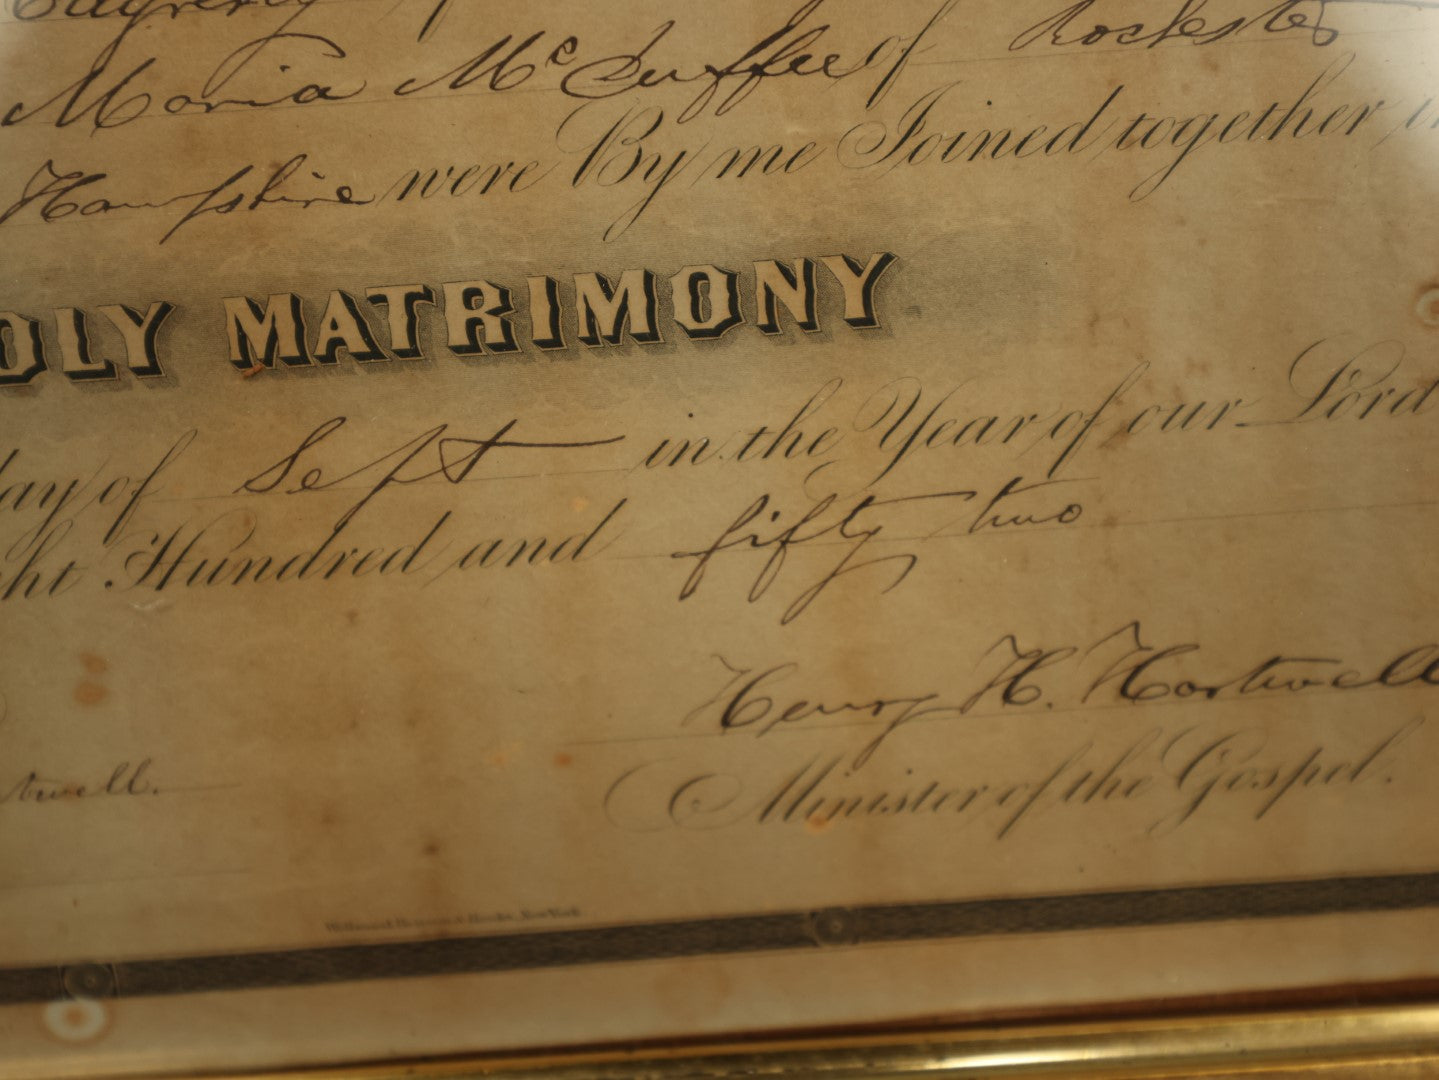 Maria McDuffee of Rochester
Hampshire were By me Joined together in
OLY MATRIMONY
day of Sept in the Year of our Lord
ght Hundred and fifty two
Henry H. Hartwell
twell.
Minister of the Gospel.
New York